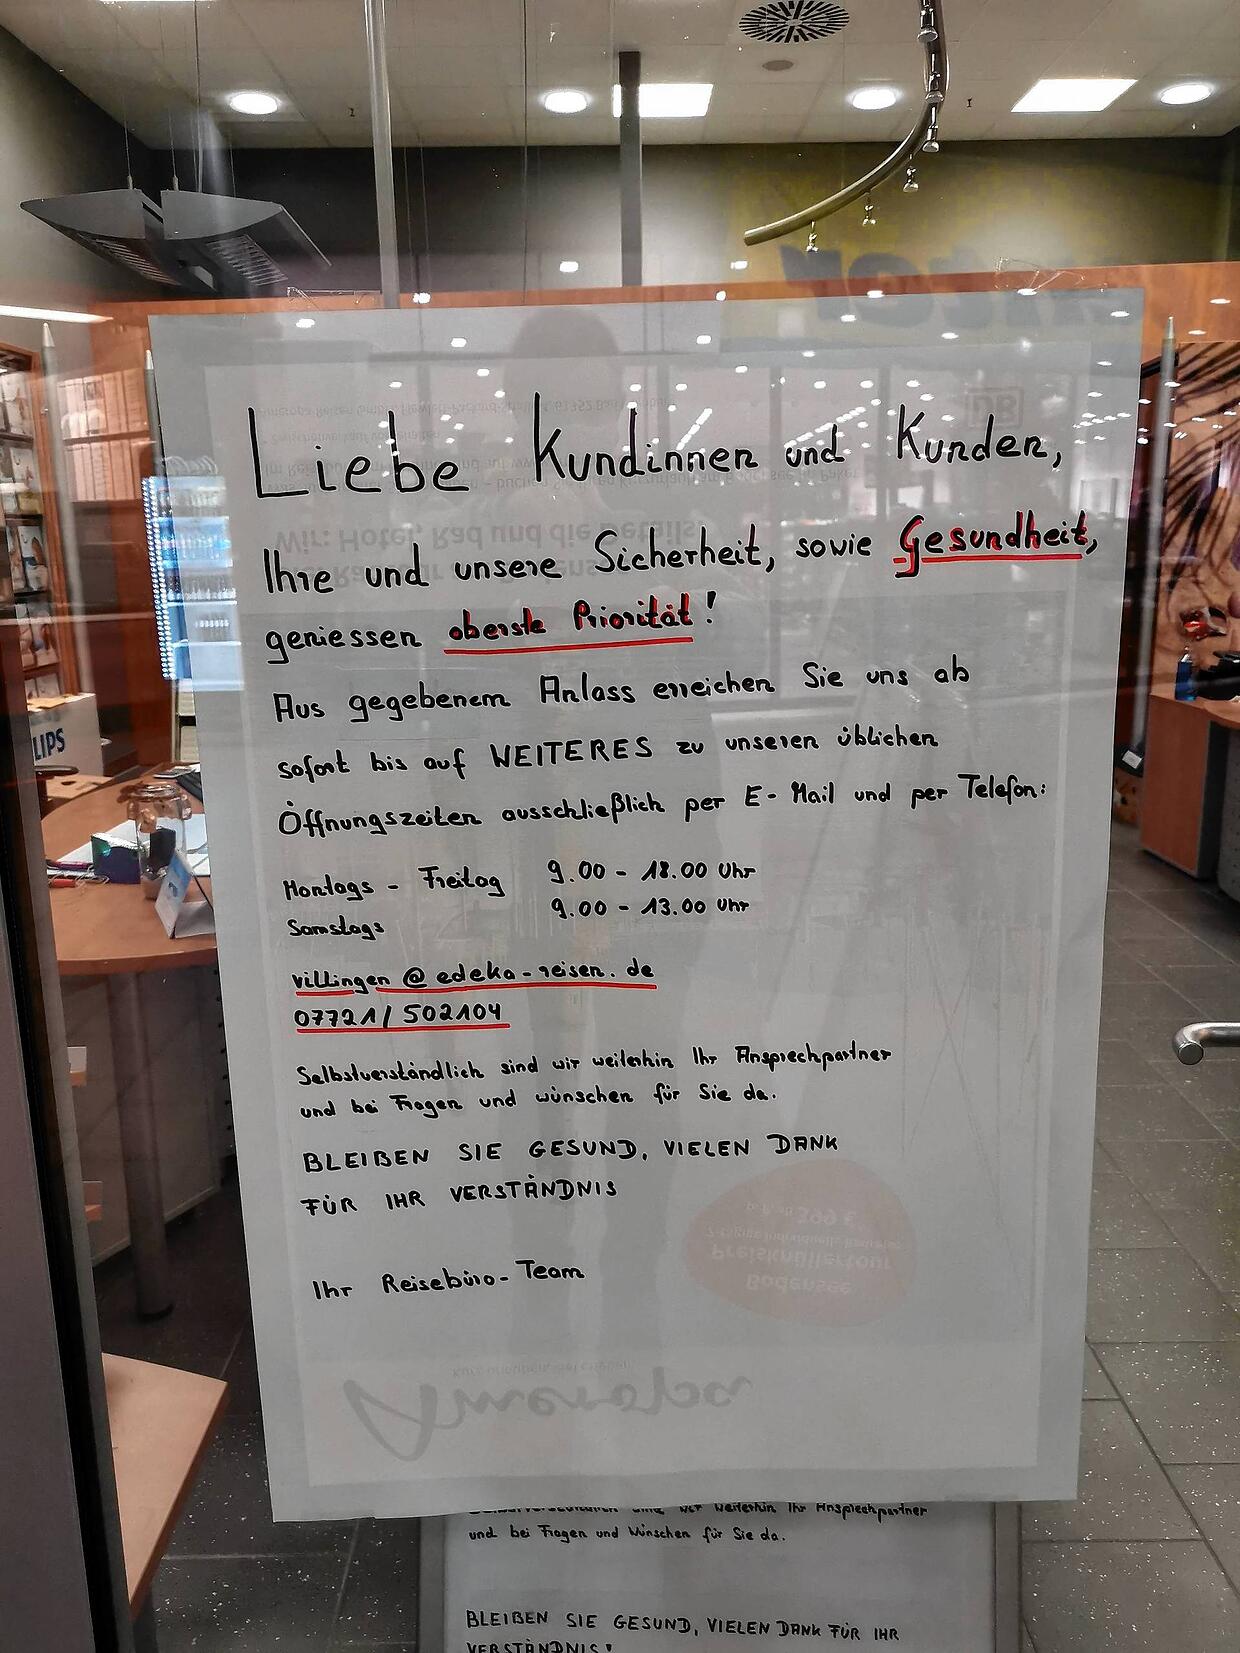 Liebe Kundinnen und Kunden,
Ihre und unsere Sicherheit, sowie Gesundheit,
geniessen oberste Priorität!
Aus gegebenem Anlass erreichen Sie uns ab
sofort bis auf WEITERES zu unseren üblichen
Öffnungszeiten ausschließlich per E-Mail und per Telefon:
Montags - Freitag 9.00 - 18.00 Uhr
Samstags 9.00 - 13.00 Uhr
villingen@edeka-reisen.de
07721/502104
Selbstverständlich sind wir weiterhin Ihr Ansprechpartner
und bei Fragen und wünschen für Sie da.
BLEIBEN SIE GESUND, VIELEN DANK
FÜR IHR VERSTÄNDNIS
Ihr Reisebüro-Team
Ameropa
Bodensee
Preisknüllertour
399 €
Wir: Hotel, Rad und die Details
DB
LIPS
Selbstverständlich sind wir weiterhin Ihr Ansprechpartner
und bei Fragen und Wünschen für Sie da.
BLEIBEN SIE GESUND, VIELEN DANK FÜR IHR
VERSTÄNDNIS!